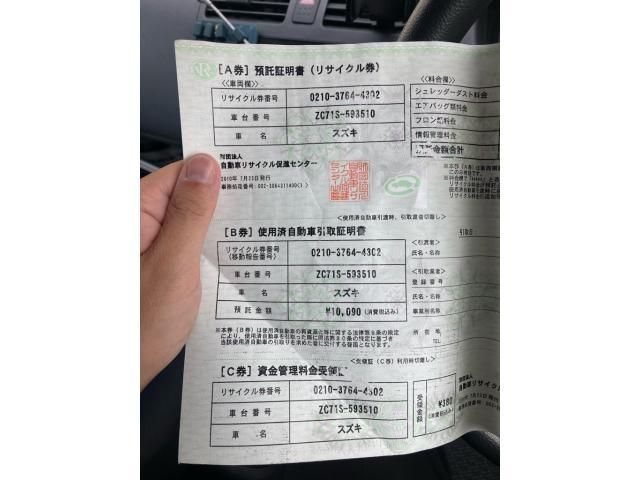 ［A券］預託証明書（リサイクル券）
＜車両欄＞
リサイクル券番号 0210-3764-4302
車台番号 ZC71S-593510
車名 スズキ
＜料金欄＞
シュレッダーダスト料金
エアバッグ類料金
フロン類料金
情報管理料金
金額合計
財団法人
自動車リサイクル促進センター
2010年 7月23日発行
＜使用済自動車引渡時、引取業者切離し＞
［B券］使用済自動車引取証明書
引取日
リサイクル券番号
（移動報告番号） 0210-3764-4302
車台番号 ZC71S-593510
車名 スズキ
預託金額 ¥10,090（消費税込み）
＜引渡者＞
氏名・名称
＜引取業者＞
登録番号
氏名・名称
事業所名称
所在地
TEL
※本券（B券）は使用済自動車の再資源化等に関する法律第８条の規定
により、使用済自動車を引取った際に同法第８０条の規定に基づき
当該使用済自動車の引取りを求めた者に交付する書面となります。
＜受領証（C券）利用時切離し＞
［C券］資金管理料金受領証
リサイクル券番号 0210-3764-4302
車台番号 ZC71S-593510
車名 スズキ
受領金額 ¥380
（消費税込み）
財団法人
自動車リサイクル